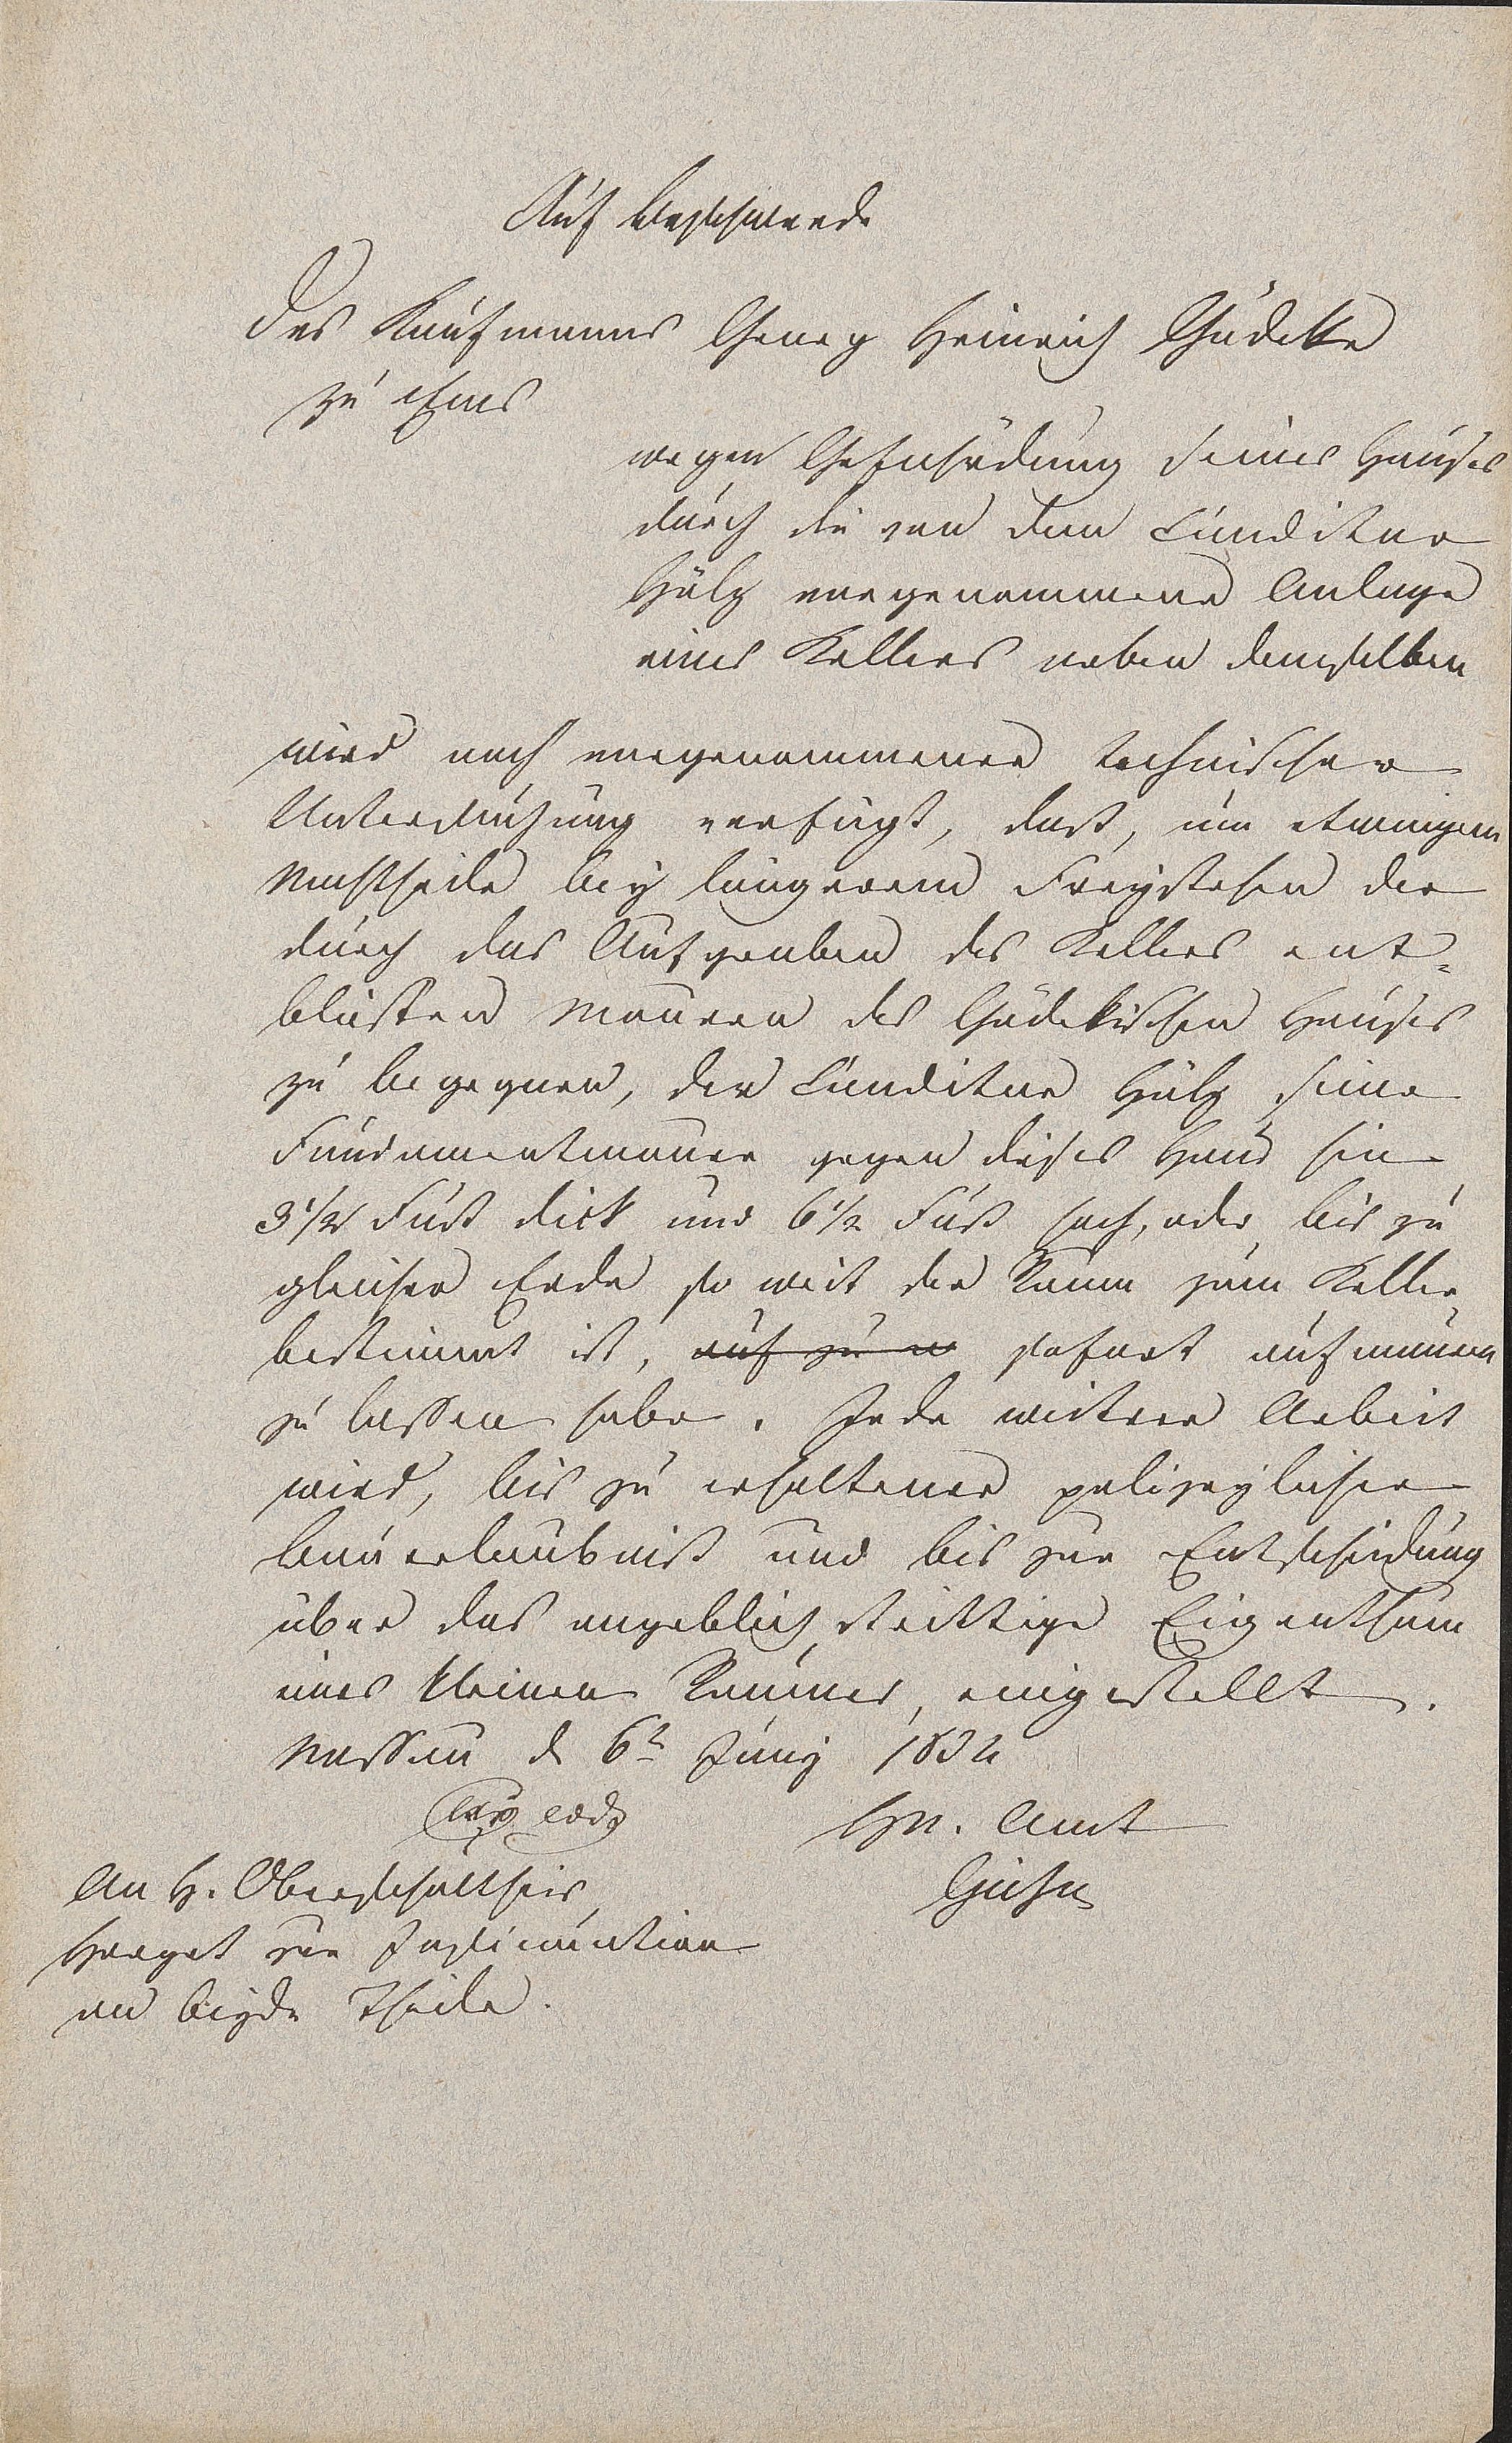 Auf Beschwerde
des Kaufmanns Georg Heinrich Gädecke
zu Ems
wegen Gefährdung seines Hauses
durch die von dem Conditor
Hölz vorgenommene Anlage
eines Kellers neben demselben
wird nach vorgenommener technischer
Untersuchung verfügt, daß, um etwaigem
Nachtheile bey längerem Freystehen der
durch das Aufgraben des Kellers ent-
blösten Mauern des Gädekischen Hauses
zu begegnen, der Conditor Hölz seine
Fundamentmauer gegen dieses Haus hin
3 1/2 Fuß dick und 6 1/2 Fuß hoch, oder bis zu
gleicher Erde so weit der Raum zum Keller
bestimmt ist, auf zu sofort aufmauern
zu lassen habe. Jede weitere Arbeit
wird, bis zu erhaltener polizeylicher
Bauerlaubniß und bis zur Entscheidung
über das angeblich streittige Eigenthum
eines kleinen Raumes, eingestellt.
Nassau d 6t Juny 1832
Hzl. Amt
An H. Oberschultheis
Herget zur Insinuation
an beyde Theile.